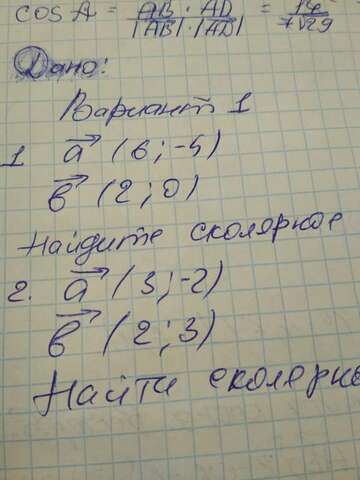 cos A = AB · AD / |AB| · |AD| = 14 / 7√29
Дано:
Вариант 1
1 a (6; -5)
в (2; 0)
Найдите сколярное
2. a (3; -2)
в (2; 3)
Найти сколярно